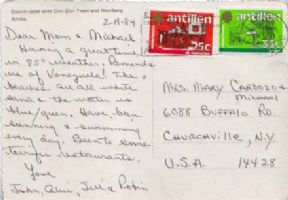 Countryside with Divi Divi Trees and Hooiberg
Aruba
2-19-84
Dear Mom & Michael
Having a great time
in 85° weather. Reminds
us of Venezuela! The
beaches are all white
sand & the water is
blue/green. Have been
sunning & swimming
every day. Been to some
terrific restaurants.
Love
John, Aline, Julie & Robin
antillen
25c
antillen
55c
Mrs. Mary Cardozo &
Michael
6088 Buffalo Rd.
Churchville, N.Y.
U.S.A. 14428